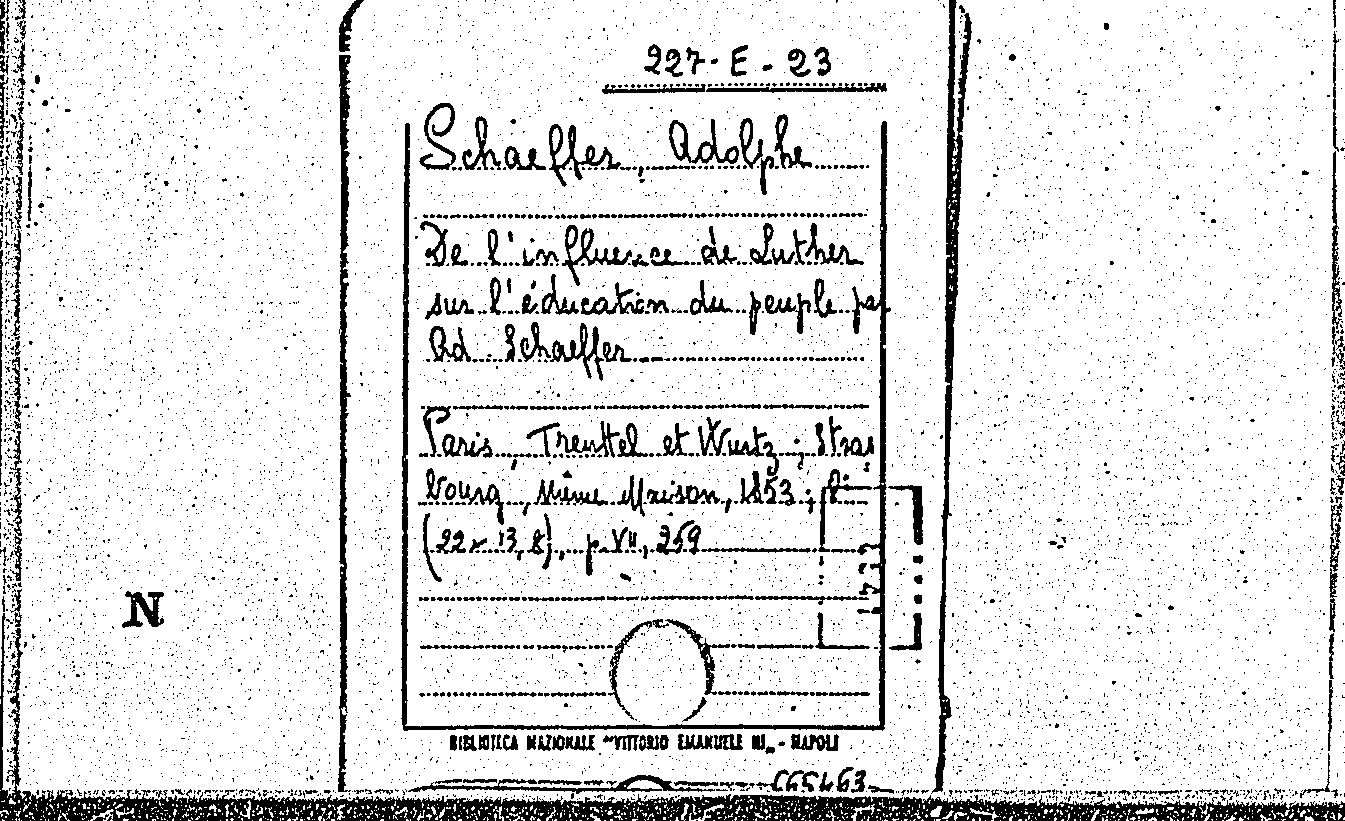 227-E-23
Schaeffer, Adolphe
De l'influence de Luther
sur l'éducation du peuple par
Ad. Schaeffer
Paris, Treuttel et Wurtz; Stras
bourg, Même Maison, 1853; 8°
(22 x 13,8), p. VII, 259
N
BIBLIOTECA NAZIONALE "VITTORIO EMANUELE III" - NAPOLI